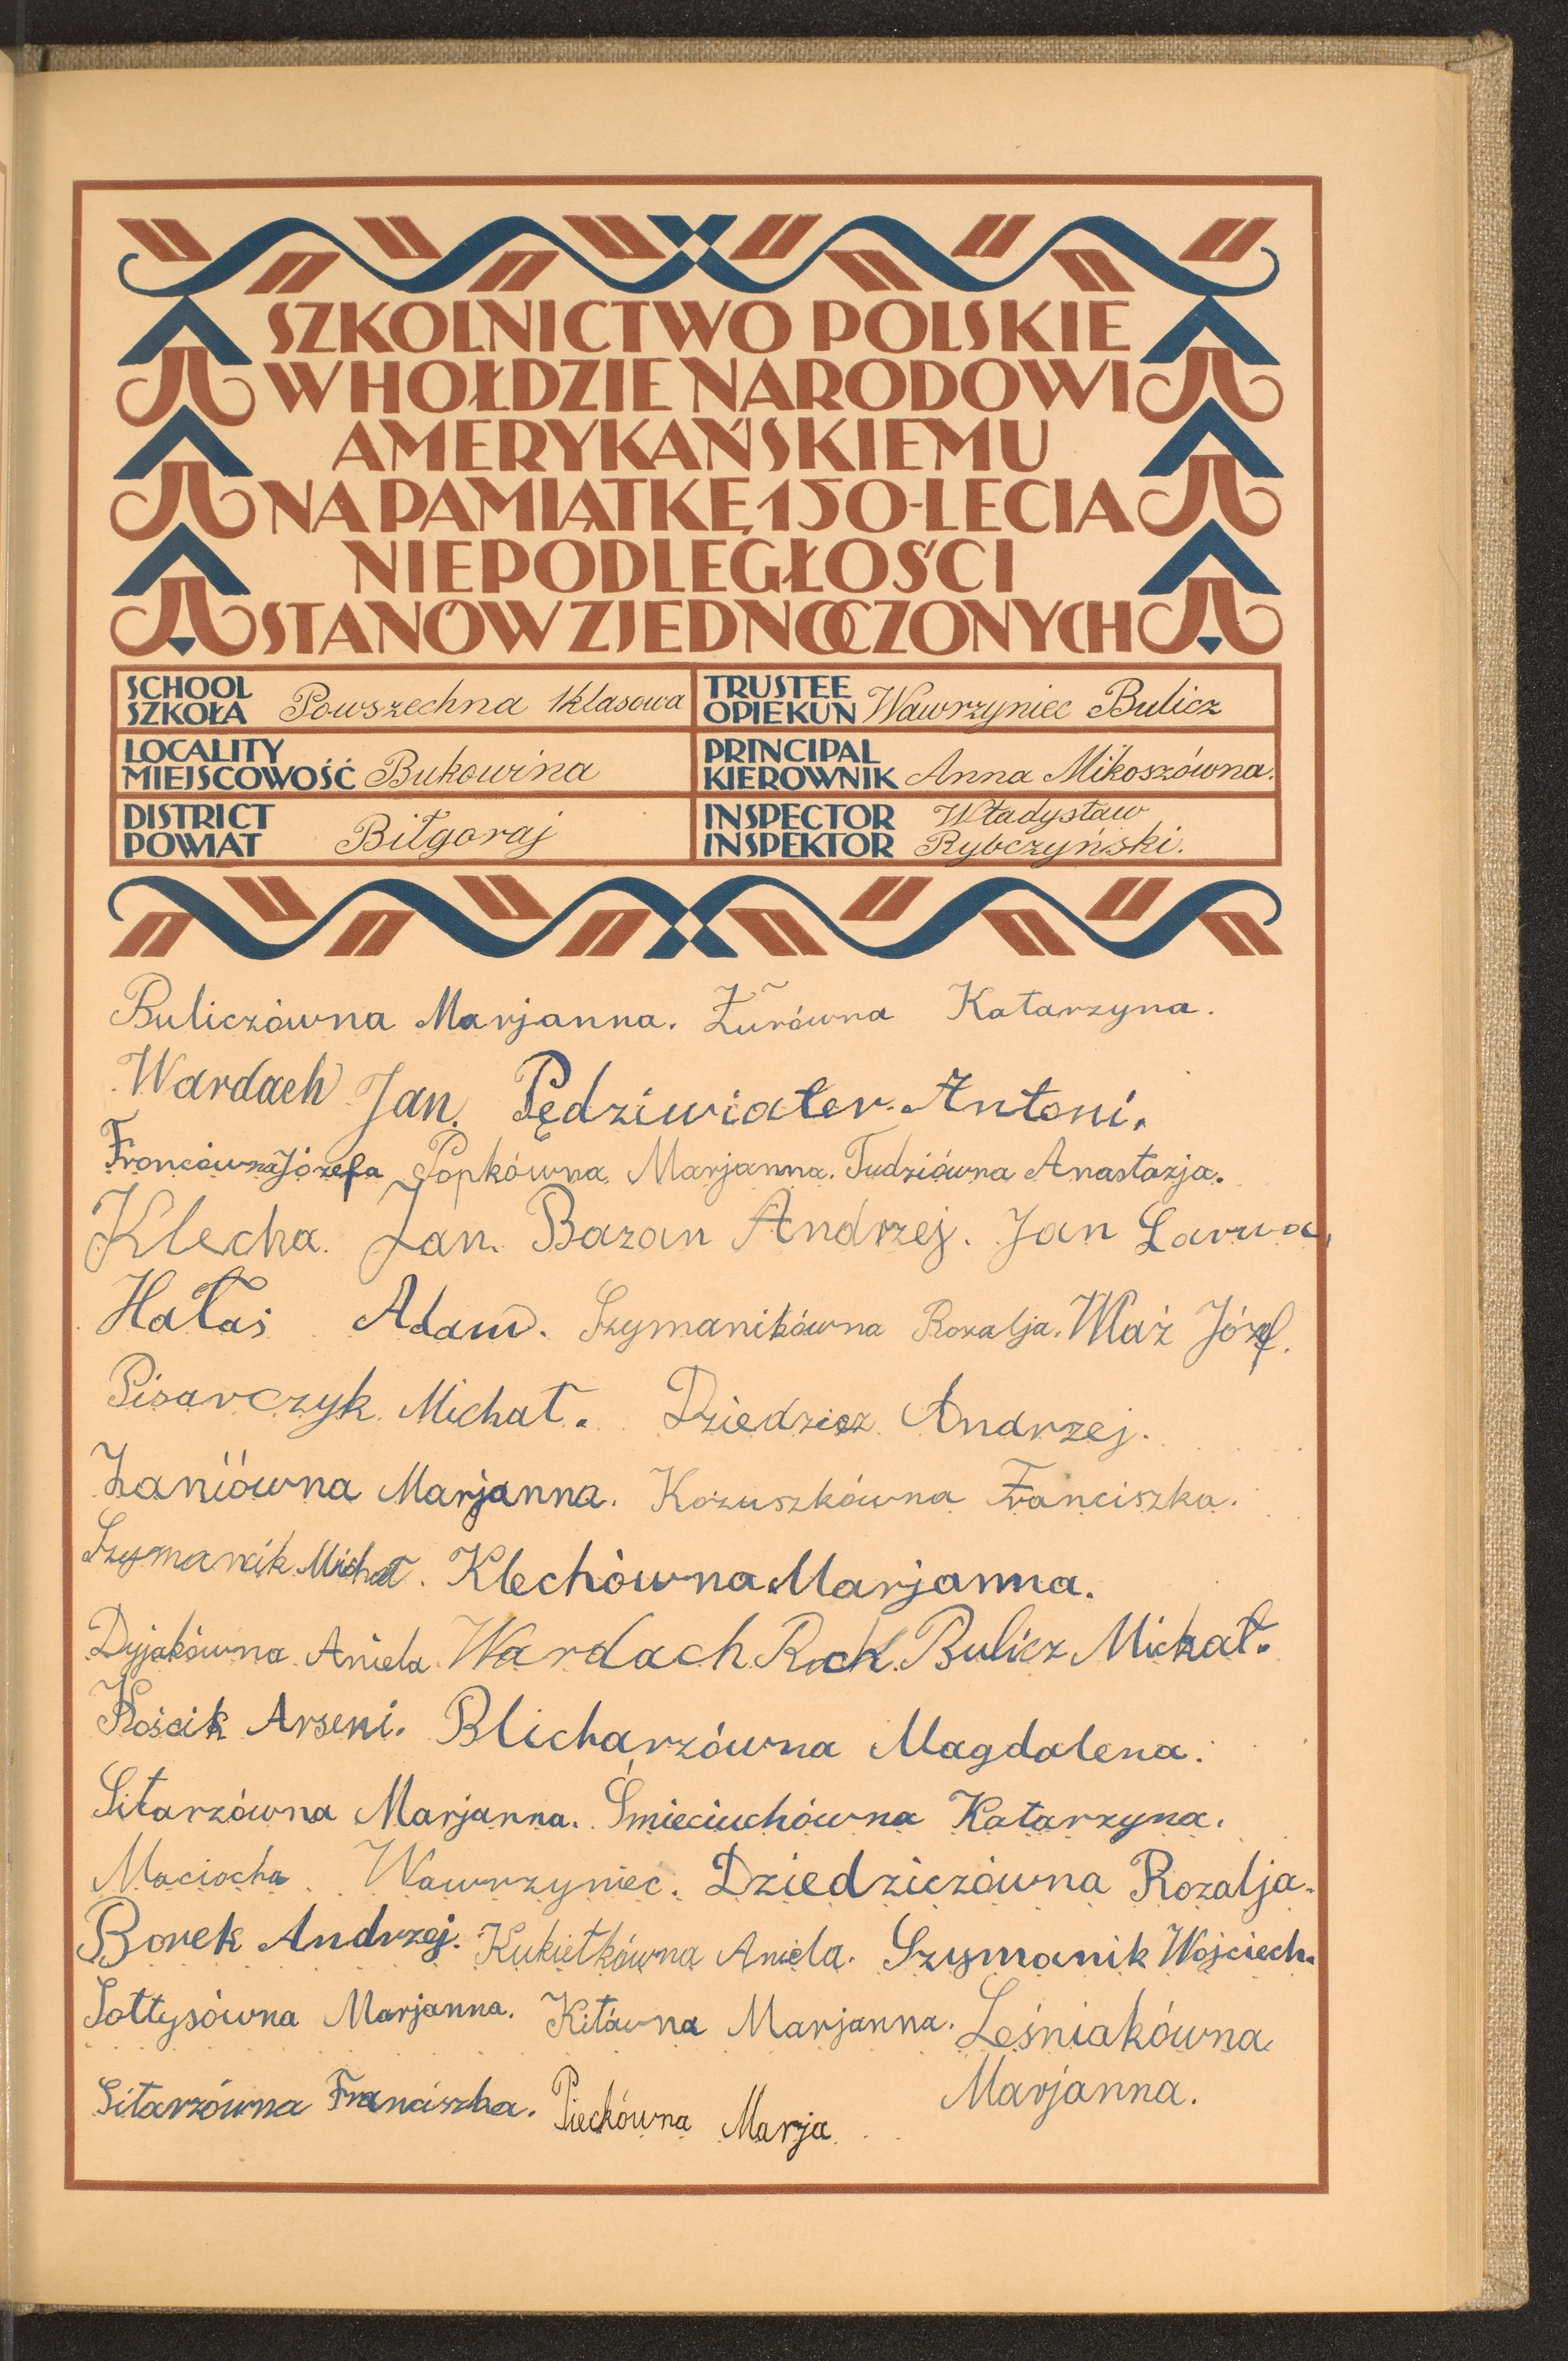 SZKOLNICTWO POLSKIE
W HOŁDZIE NARODOWI
AMERYKAŃSKIEMU
NA PAMIĄTKĘ 150-LECIA
NIEPODLEGŁOŚCI
STANÓW ZJEDNOCZONYCH
SCHOOL
SZKOŁA Powszechna 1klasowa
TRUSTEE
OPIEKUN Wawrzyniec Bulicz
LOCALITY
MIEJSCOWOŚĆ Bukowina
PRINCIPAL
KIEROWNIK Anna Mikoszówna.
DISTRICT
POWIAT Biłgoraj
INSPECTOR Władysław
INSPEKTOR Rybczyński.
Buliczówna Marjanna. Żurówna Katarzyna.
Wardach Jan. Pędziwiater Antoni.
Froncówna Józefa Popkówna Marjanna. Tudziówna Anastazja.
Klecha Jan. Bazan Andrzej. Jan Larwa,
Hałas Adam. Szymanikówna Rozalja. Właź Józef.
Pisarczyk Michał. Dziedzicz Andrzej.
Zaniówna Marjanna. Kożuszkówna Franciszka.
Szymanik Michał. Klechówna Marjanna.
Dyjakówna Aniela Wardach Roch. Bulicz Michał.
Kościk Arseni. Blicharzówna Magdalena.
Sitarzówna Marjanna. Śmieciuchówna Katarzyna.
Maciocha Wawrzyniec. Dziedziczówna Rozalja.
Borek Andrzej. Kukiełkówna Aniela. Szymanik Wojciech.
Sołtysówna Marjanna. Kitówna Marjanna. Leśniakówna
Marjanna.
Sitarzówna Franciszka. Piechówna Marja.